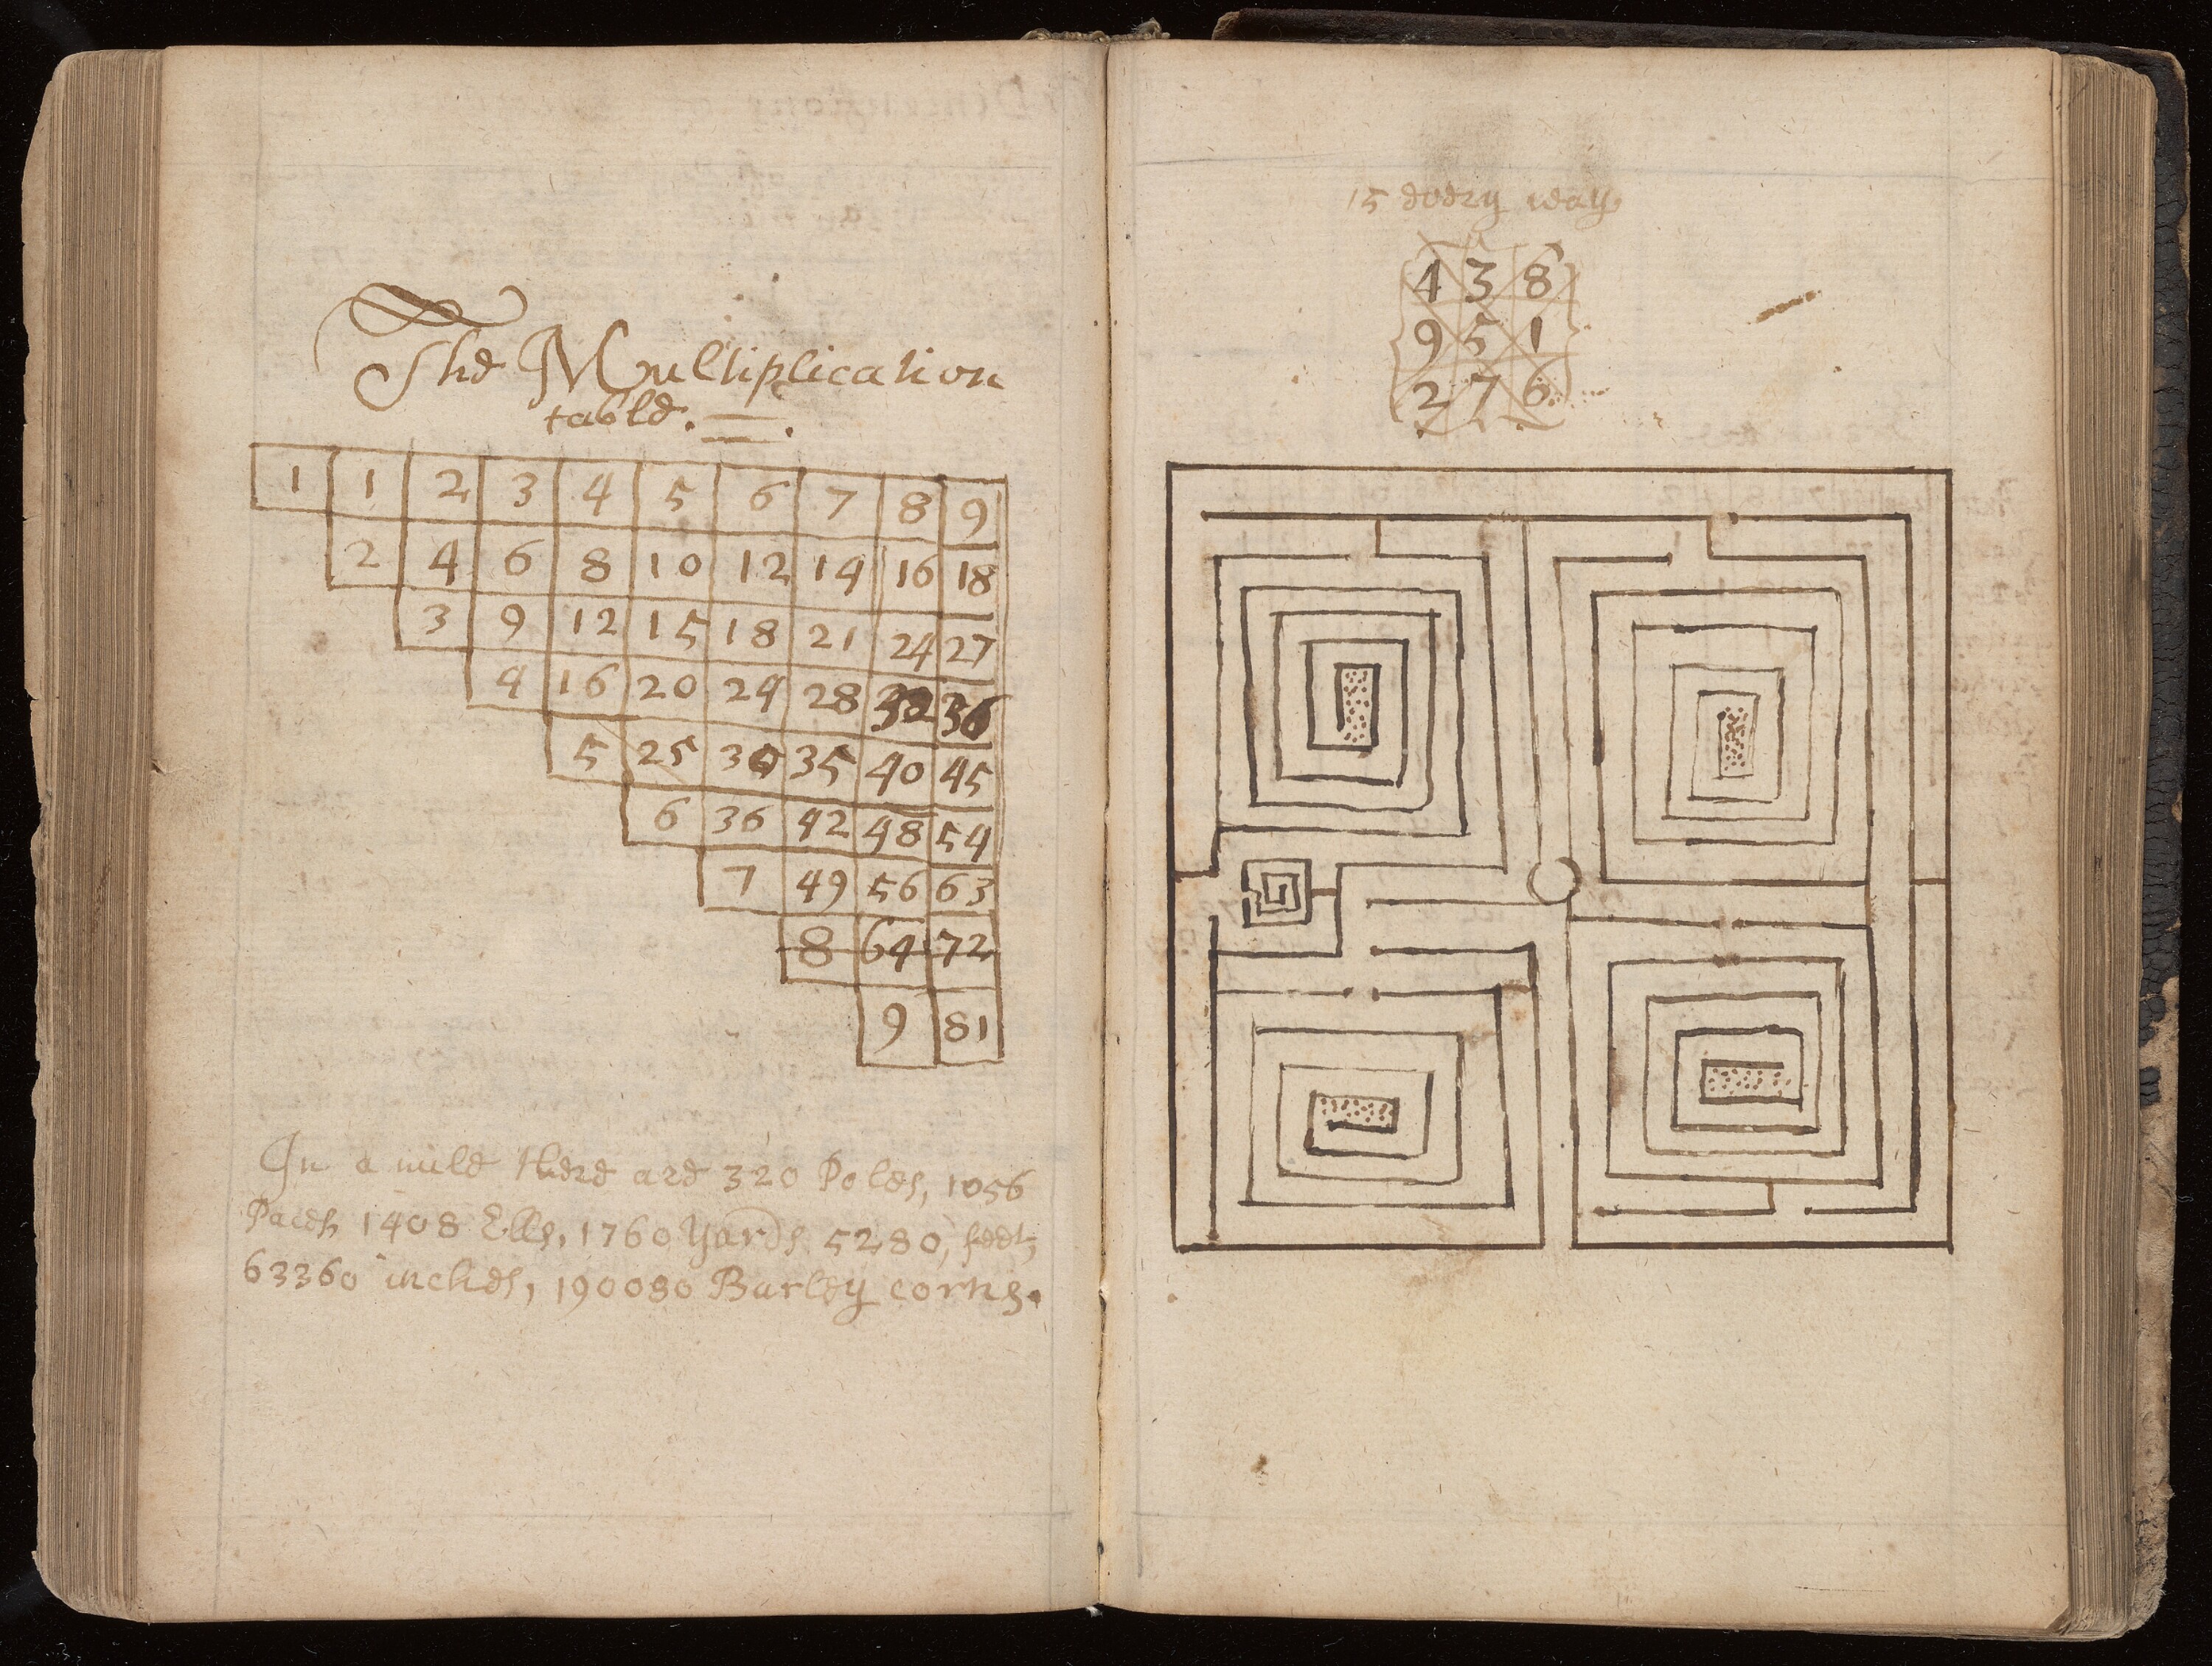 The Multiplication
table.
1 1 2 3 4 5 6 7 8 9
2 4 6 8 10 12 14 16 18
3 9 12 15 18 21 24 27
4 16 20 24 28 32 36
5 25 30 35 40 45
6 36 42 48 54
7 49 56 63
8 64 72
9 81
In a mile there are 320 Poles, 1056
Paces 1408 Ells, 1760 Yards 5280, feet,
63360 inches, 190080 Barley corns.
15 every way.
4 3 8
9 5 1
2 7 6